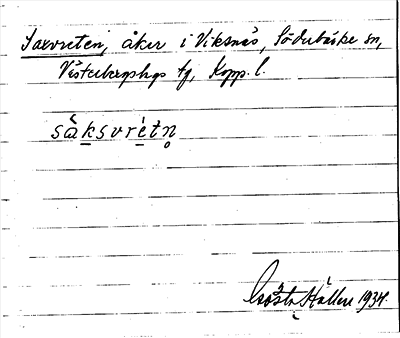 Saxvreten, åker i Viksnäs, Söderbärke sn,
Västerbergslags tg, Kopp. l.
sàksvrétn̥
Gösta Hállen 1934.